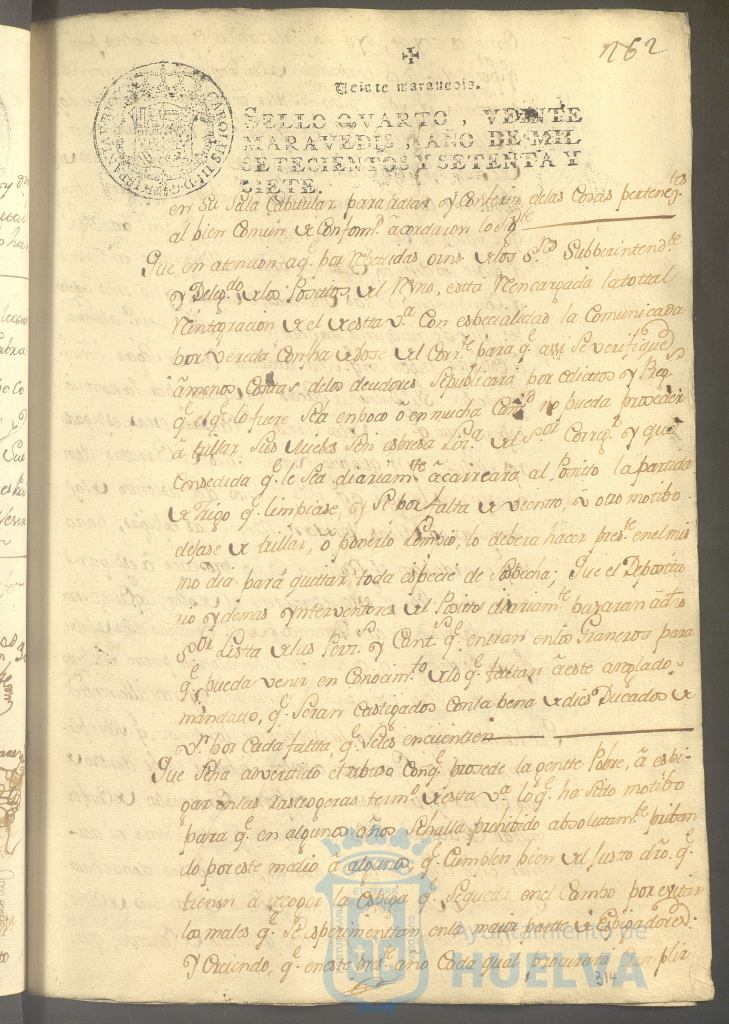 1762
Veinte maravedis.
SELLO QVARTO, VEINTE
MARAVEDIS, AÑO DE MIL
SETECIENTOS Y SETENTA Y
SIETE.
CAROLUS III D G HISPANIAR REX
en su Sala Capitular para tratar y Conferir delas Cosas perteneztes
al bien Comun de Conformd acordaron lo Sigte
Que en atencion aqe por repetidas orns de los Sres Subberintendte
y Delegdo de los Positos del Ryno, estta Rencargada la tottal
Reintegracion de el de estta va Con especialidad la Comunicada
por vereda Con fha dose del Corrte para qe assi se verifique
à menos Costas delos deudores, se publicara por edictos y Preg.s
qe el qe lo fuere sea en poco ô en mucha Cantd no pueda proceder
à trillar sus Mieses sin espresa Liza del Sor Corregr y que
Consedida qe le sea diariamte acarreara al Posito la partida
de trigo qe limpiase, y si por falta de viento, u otro motibo
dejase de trillar, o ponerlo limpio, lo debera hacer preste en el mis
mo dia para quittar toda especie de Sospecha; Que el Deposita
rio y demas Ynterventores del Posito diariamte pasaran a dho
Sor Listta de las Pers.s y Cantt.s qe entran en los Graneros para
qe pueda venir en Conocimto de los qe faltan à este arreglado
mandatto, qe seran castigados con la pena de dies Ducados de
Vn por cada faltta, qe seles encuentren
Que seha advertido el abuso Conqe prosede la gentte Pobre, à espi
gar en las rastrogeras termo de estta va lo qe ha sido motibo
para qe en algunos años se halla prohibido absolutamte priban
do por este medio à algunos, qe Cumplen bien del justo dro qe
tienen à recoger la espiga qe se queda en el Campo por evitar
los males qe se esperimenttan en la maior parte de Espigadores.
Y Creiendo, qe en este preste año Cada qual procurara Cumplir
314
Ayuntamiento de
HUELVA